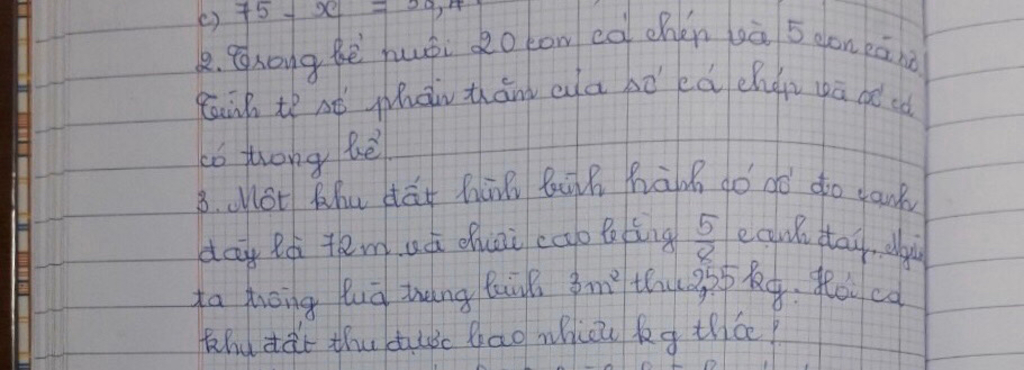 c) 75 - x =
2. Trong bể nuôi 20 con cá chép và 5 con cá rô.
Tính tỉ số phần trăm của số cá chép và số cá
có trong bể.
3. Một khu đất hình bình hành có số đo cạnh
đáy là 72m và chiều cao bằng 5/8 cạnh đáy. Người
ta trồng lúa trung bình 3m² thu 2,55 kg. Hỏi cả
khu đất thu được bao nhiêu kg thóc?